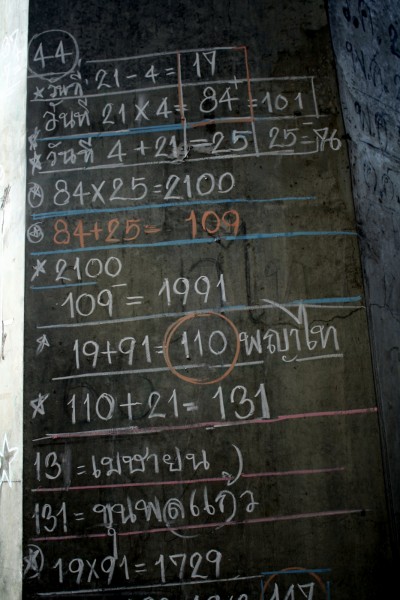 44
วันที่ 21-4= 17
วันที่ 21X4= 84 =101
วันที่ 4+21=25 25=76
84X25=2100
84+25= 109
2100
109 = 1991
19+91=110 พญาไท
110+21= 131
13 =เมษายน
131= ขุนพลแก้ว
19X91=1729